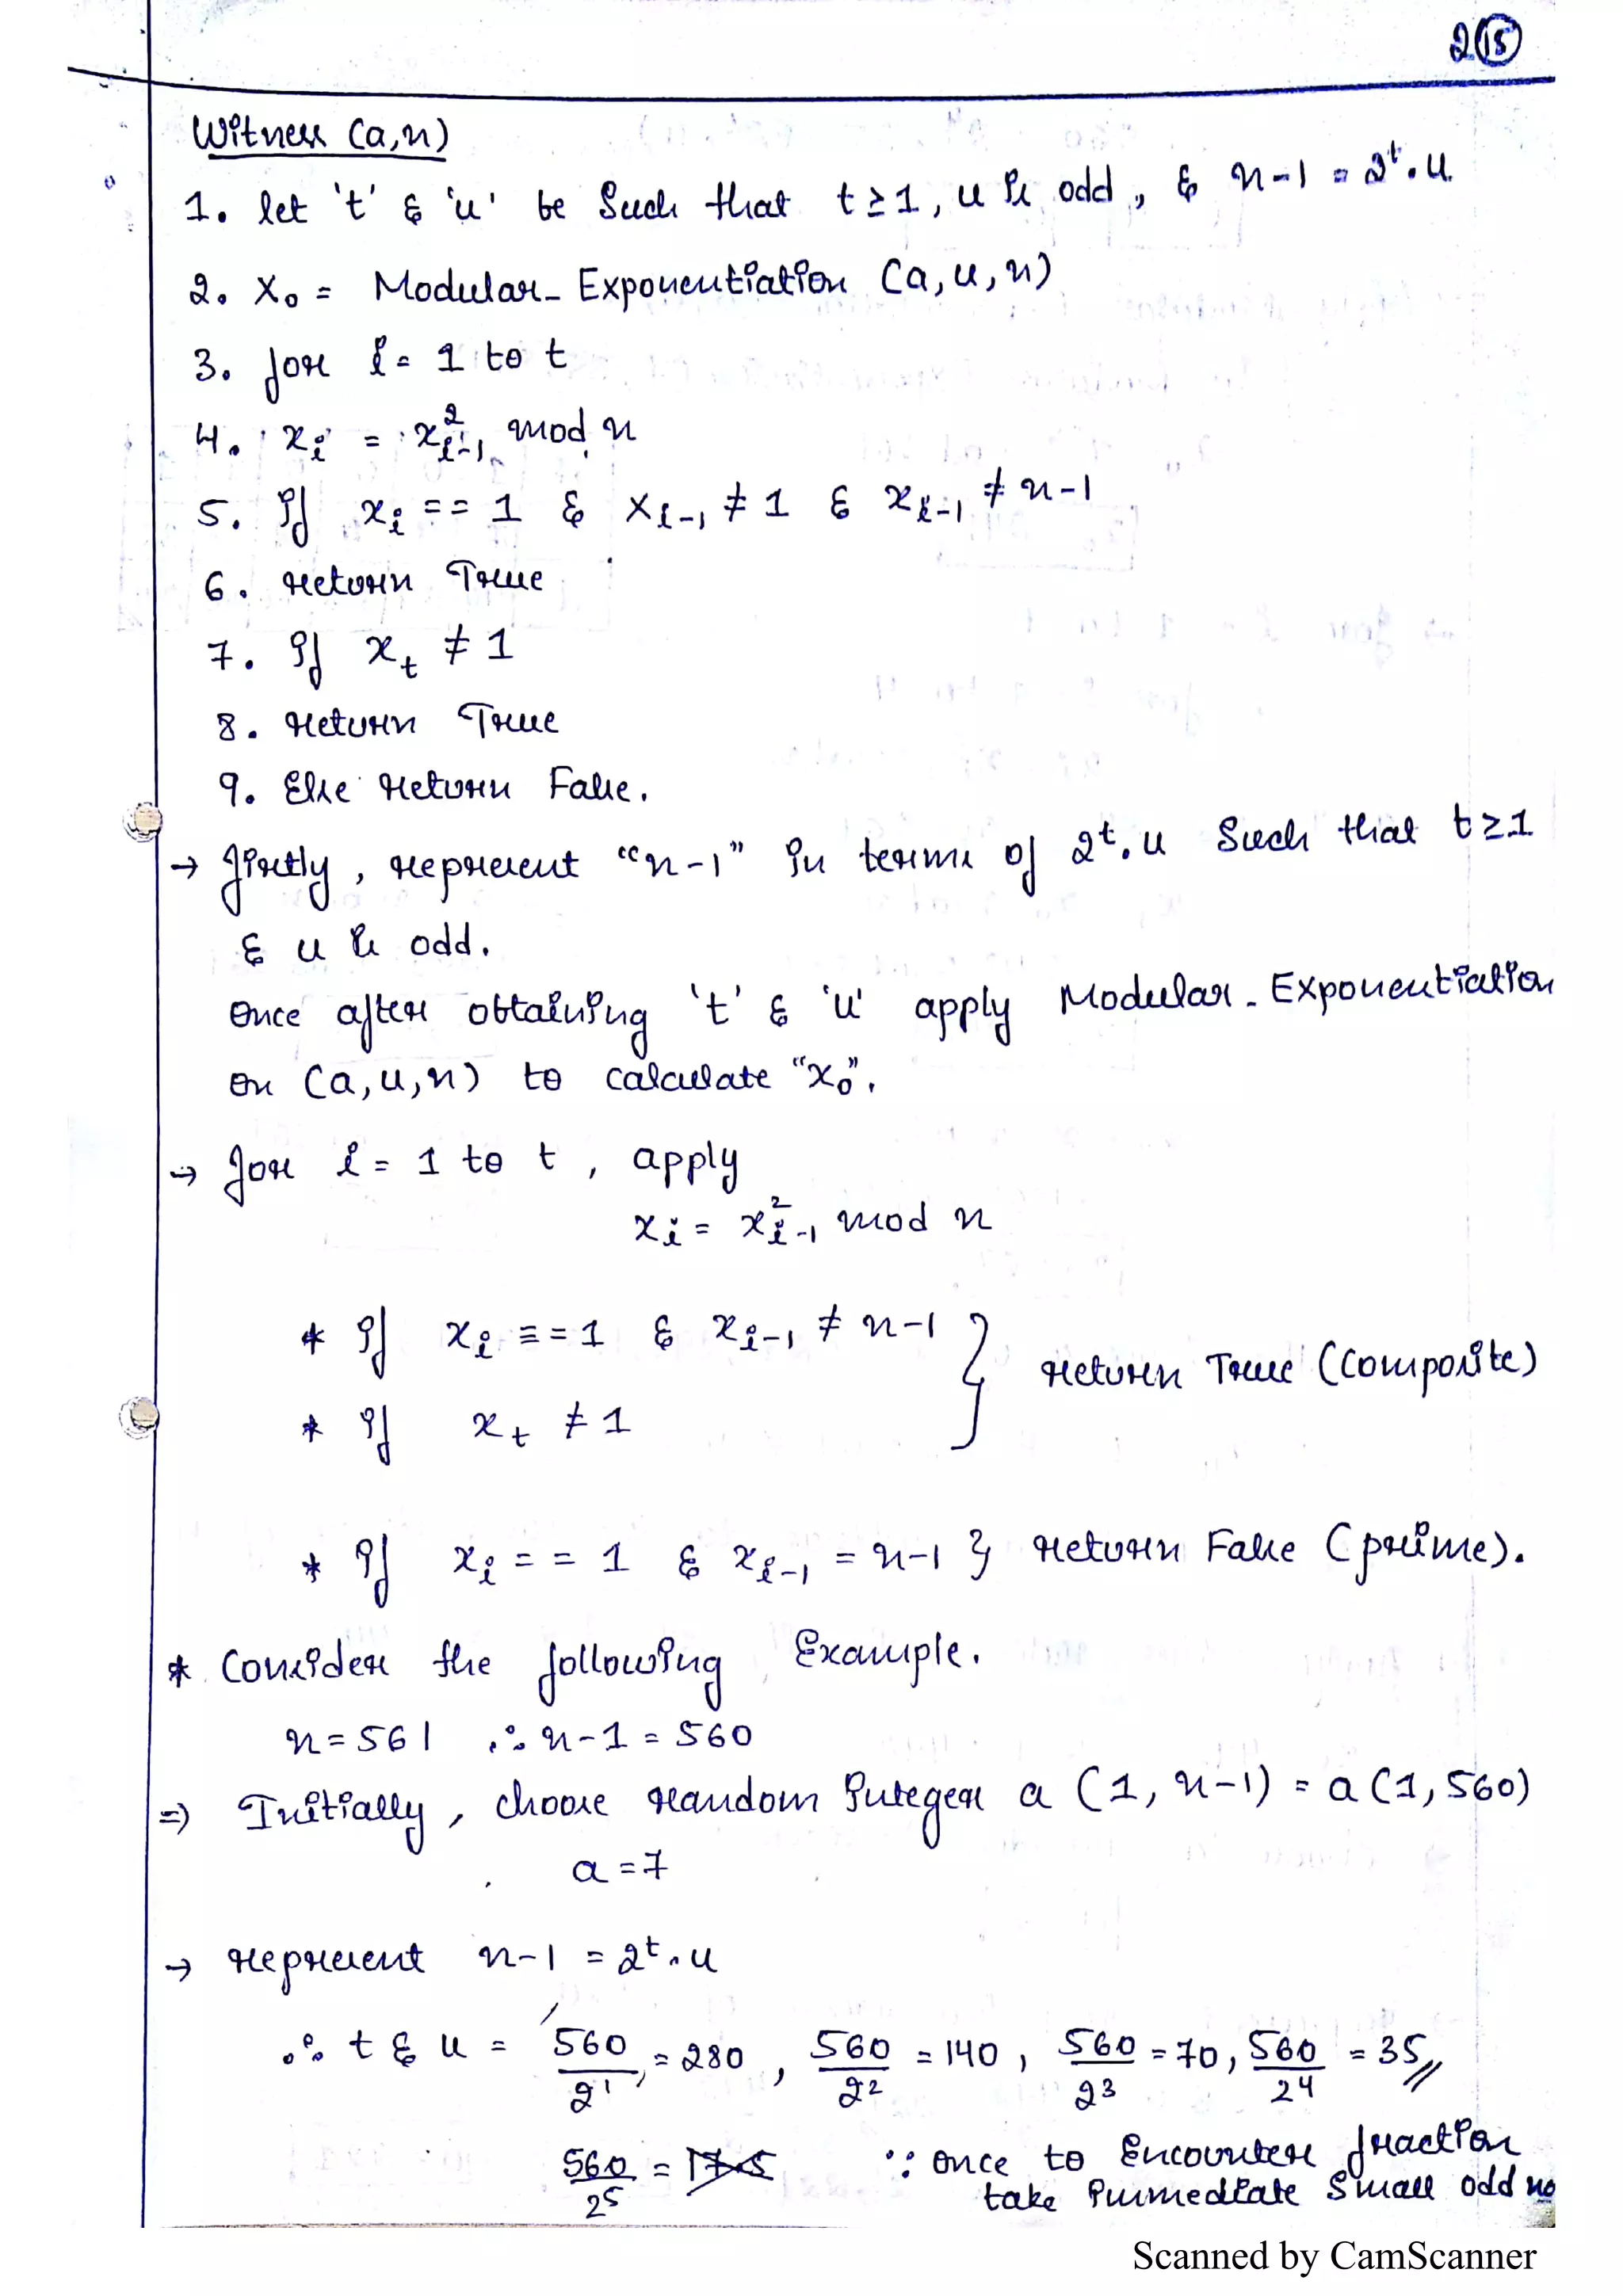 2(15)
Witness (a,n)
1. let 't' & 'u' be such that t ≥ 1, u is odd, & n-1 = 2^t.u.
2. X₀ = Modular-Exponentiation (a,u,n)
3. for i = 1 to t
4. xᵢ = x²ᵢ₋₁ mod n
5. If xᵢ == 1 & Xᵢ₋₁ ≠ 1 & xᵢ₋₁ ≠ n-1
6. return True
7. If xₜ ≠ 1
8. return True
9. Else return False.
→ firstly, represent "n-1" in terms of 2^t.u such that t ≥ 1
& u is odd.
Once after obtaining 't' & 'u' apply Modular-Exponentiation
on (a,u,n) to calculate "x₀".
→ for i = 1 to t, apply
xᵢ = x²ᵢ₋₁ mod n
* If xᵢ == 1 & xᵢ₋₁ ≠ n-1 } return True (Composite)
* If xₜ ≠ 1
* If xᵢ == 1 & xᵢ₋₁ = n-1 } return False (prime).
* Consider the following Example.
n = 561 ∴ n-1 = 560
⇒ Initially, choose random integer a (1, n-1) = a (1, 560)
a = 7
→ represent n-1 = 2^t.u
∴ t & u = 560/2¹ = 280, 560/2² = 140, 560/2³ = 70, 560/2⁴ = 35//
560/2⁵ = 17.5 ∵ once to Encounter fraction
take immediate small odd no
Scanned by CamScanner